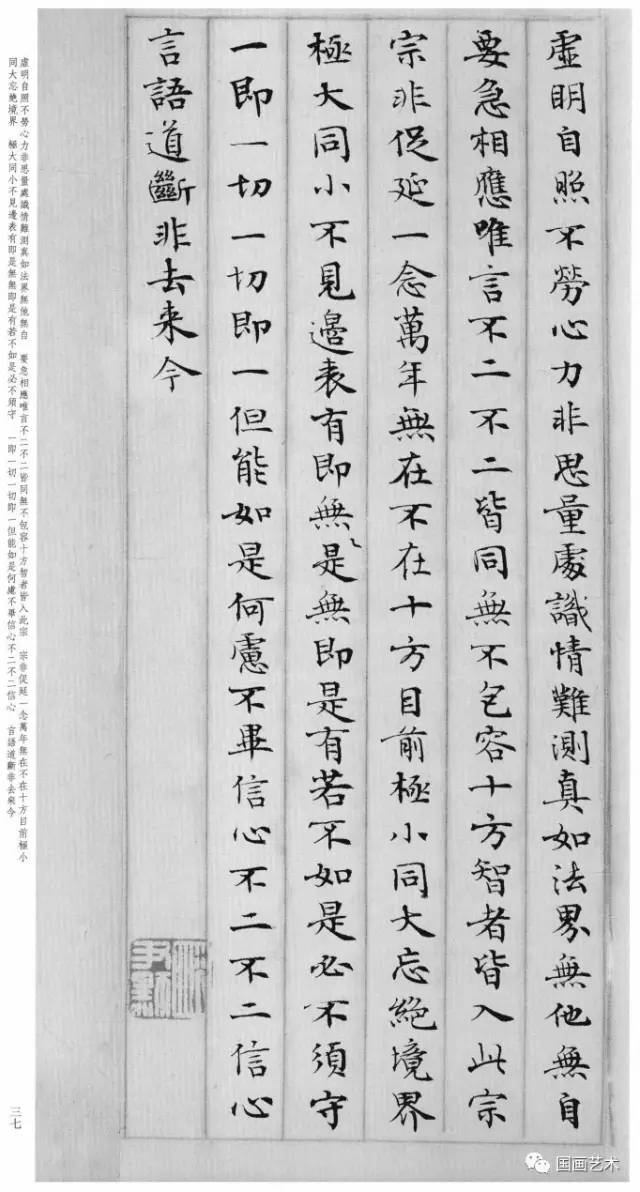 虛明自照不勞心力非思量處識情難測真如法界無他無自
要急相應唯言不二不二皆同無不包容十方智者皆入此宗
宗非促延一念萬年無在不在十方目前極小同大忘絕境界
極大同小不見邊表有即無是無即是有若不如是必不須守
一即一切一切即一但能如是何慮不畢信心不二不二信心
言語道斷非去来今
虛明自照不勞心力非思量處識情難測真如法界無他無自　要急相應唯言不二不二皆同無不包容十方智者皆入此宗　宗非促延一念萬年無在不在十方目前極小
同大忘絕境界　極大同小不見邊表有即是無無即是有若不如是必不須守　一即一切一切即一但能如是何慮不畢信心不二不二信心　言語道斷非去來今
三七
国画艺术